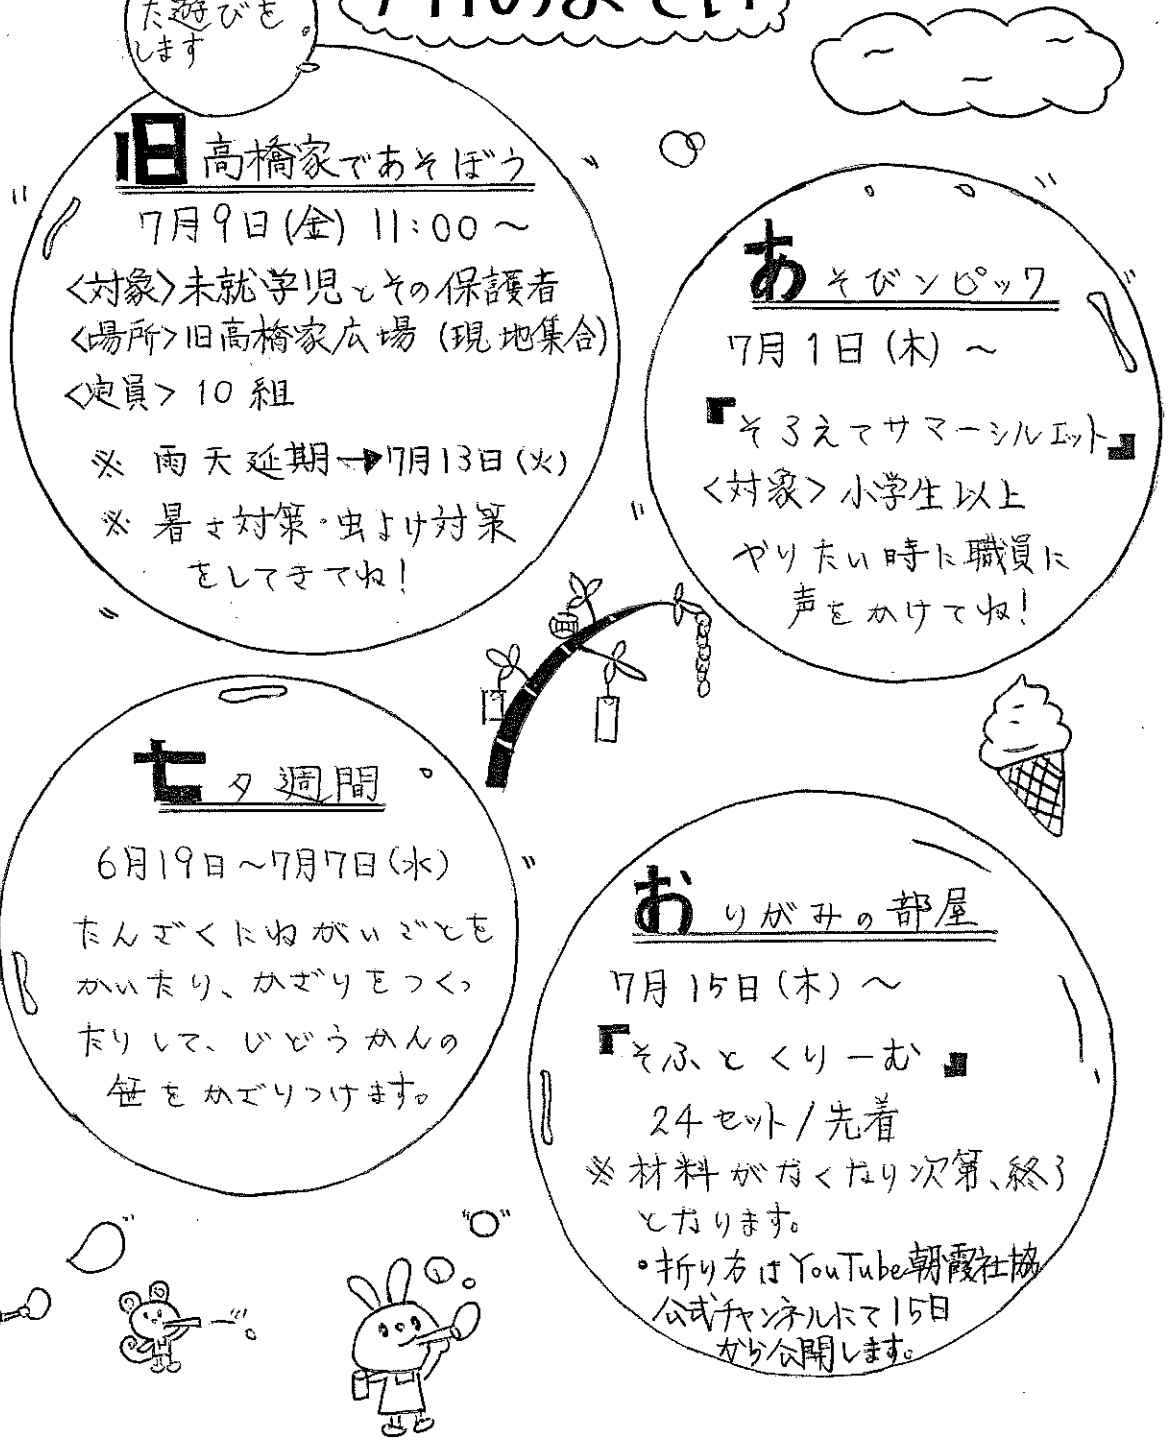 た遊びを
します
旧高橋家であそぼう
7月9日(金) 11:00～
<対象>未就学児とその保護者
<場所>旧高橋家広場 (現地集合)
<定員> 10組
※ 雨天延期→7月13日(火)
※ 暑さ対策・虫よけ対策
をしてきてね!
あそびンピック
7月1日(木)～
『そろえてサマーシルエット』
<対象> 小学生以上
やりたい時に職員に
声をかけてね!
七夕週間
6月19日～7月7日(水)
たんざくにねがいごとを
かいたり、かざりをつくっ
たりして、じどうかんの
笹をかざりつけます。
おりがみの部屋
7月15日(木)～
『そふとくりーむ』
24セット/先着
※材料がなくなり次第、終了
となります。
・折り方はYouTube朝霞社協
公式チャンネルにて15日
から公開します。